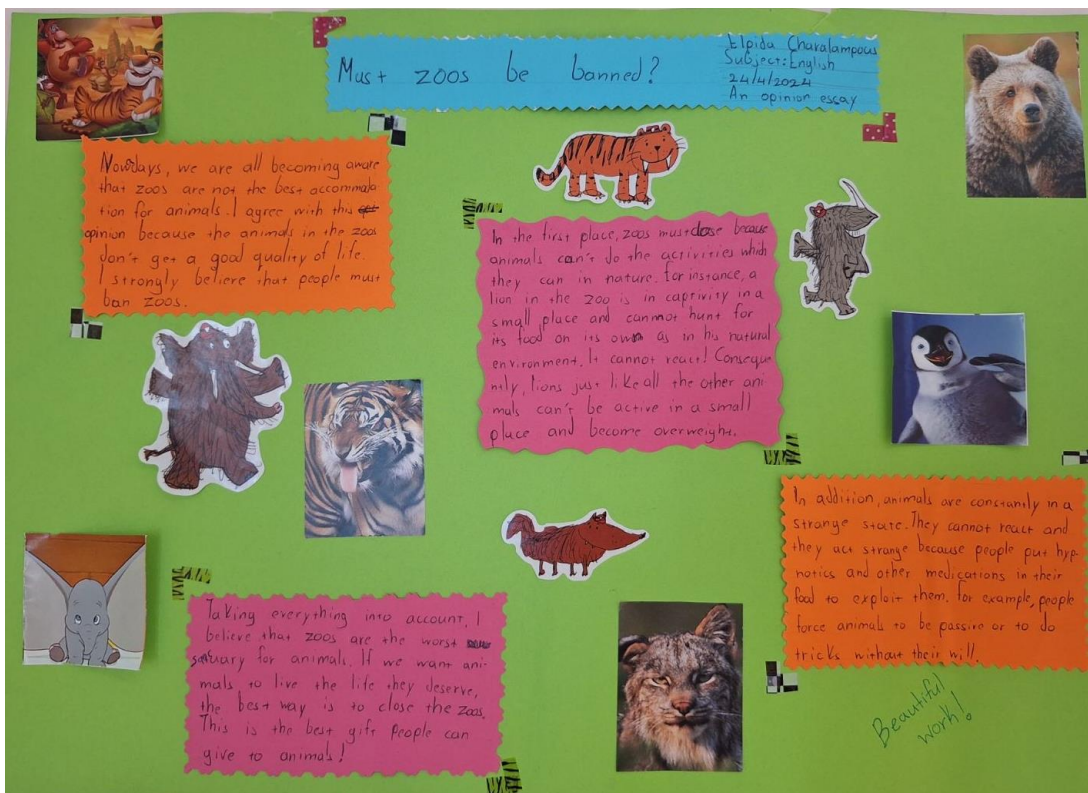 Must zoos be banned?
Elpida Charalampous
Subject: English
24/4/2024
An opinion essay
Nowdays, we are all becoming aware
that zoos are not the best accommoda
tion for animals. I agree with this
opinion because the animals in the zoo
don't get a good quality of life.
I strongly believe that people must
ban zoos.
In the first place, zoos must close because
animals can't do the activities which
they can in nature. For instance, a
lion in the zoo is in captrivity in a
small place and cannot hunt for
its food on its own as in his natural
environment. It cannot react! Conseque
ntly, lions just like all the other ani
mals can't be active in a small
place and become overweight.
In addition, animals are constantly in a
strange state. They cannot react and
they act strange because people put hyp-
notics and other medications in their
food to exploit them. For example, people
force animals to be passive or to do
tricks without their will.
Taking everything into account, I
believe that zoos are the worst
for animals. If we want ani-
mals to live the life they deserve,
the best way is to close the zoos.
This is the best gift people can
give to animals!
Beautiful
work!